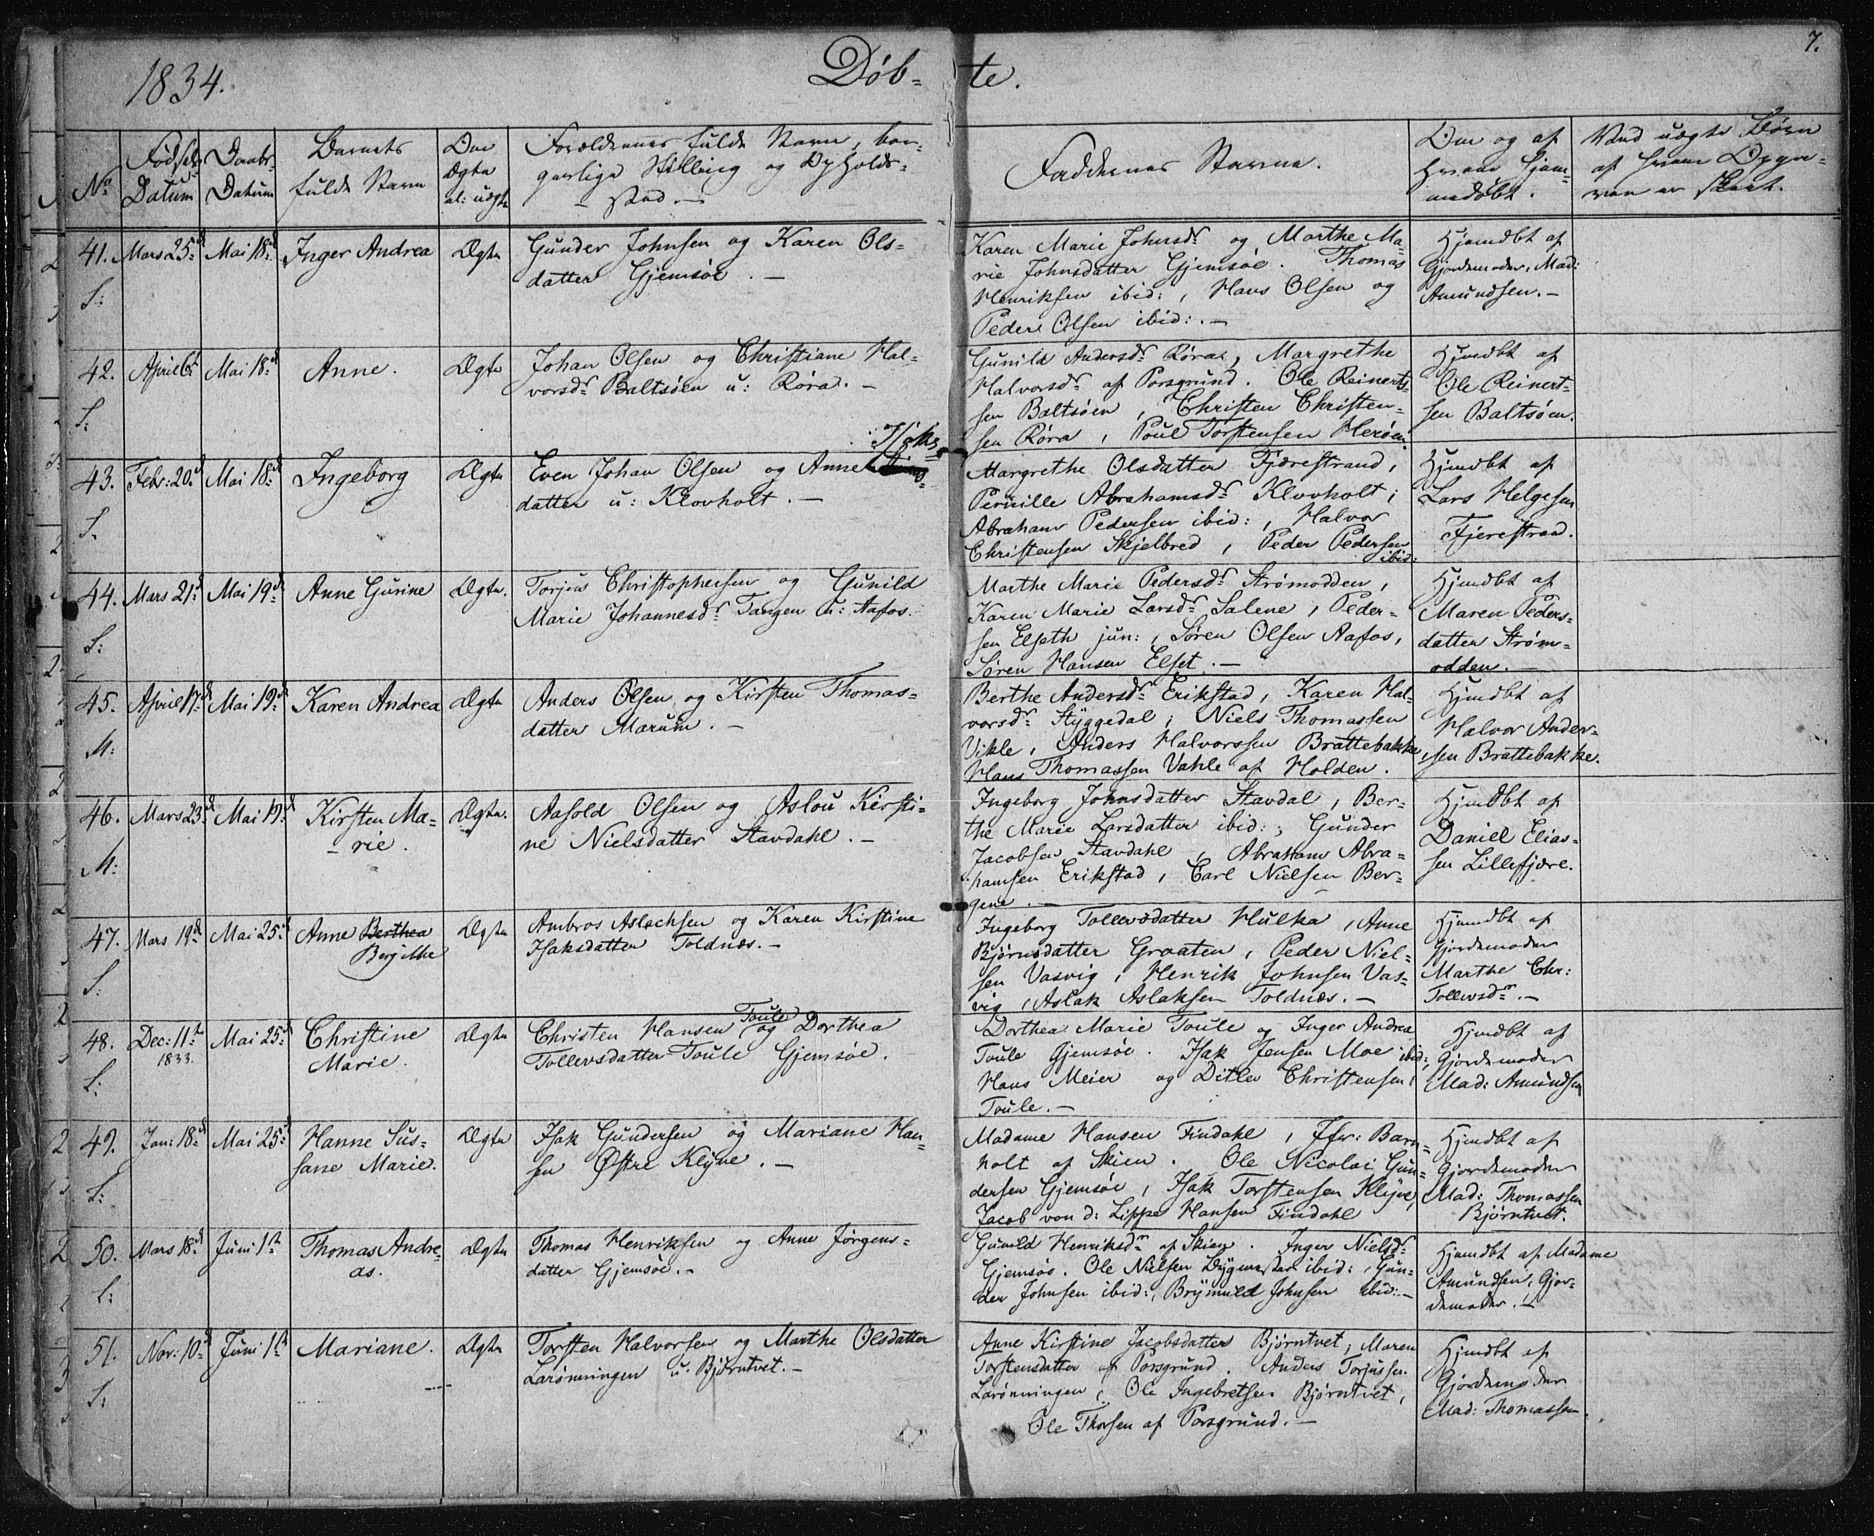 7.
1834.
Døb-
te.
No
Fødsels
Datum
Daabs-
Datum
Barnets
fulde Navn
Om
Ægte
el: uægte
Forældrenes fulde Navn, bor-
gerlige Stilling og Opholds-
sted.
Faddernes Navne.
Om og af
hvem hjem-
medøbt.
Ved uægte Børn
41.
S:
Mars 25de
Mai 18de
Inger Andrea
Ægte
Gunder Johnsen og Karen Ols-
datter Gjemsøe. —
Karen Marie Johnsdr og Marthe Ma-
rie Johnsdatter Gjemsøe. Thomas
Henriksen ibid:, Hans Olsen og
Peder Olsen ibid:. —
Hjemdbt af
Gjordemoder, Mad:
Amundsen. —
42.
S:
April 6te
Mai 18de
Anne.
Ægte
Johan Olsen og Christiane Hal-
vorsdr Baltsøen u: Røra. —
Gunild Andersdr Røra, Margrethe
Halvorsdr af Porsgrund. Ole Reinert-
sen Baltsøen, Christen Christen-
sen Røra, Poul Torstensen Herøen
Hjemdbt af
Ole Reinert-
sen Baltsøen.
43.
S.
Febr: 20de
Mai 18de
Ingeborg
Ægte
Isaks
Even Johan Olsen og Anne
datter u: Klovholt. —
Margrethe Olsdatter Fjærestrand,
Pernille Abrahamsdr Klovholt;
Abraham Pedersen ibid:, Halvor
Christensen Skjelbred, Peder Pedersen
ibid:
Hjmdbt af
Lars Helgesen
Fjærestran.
44.
S:
Mars 21de
Mai 19de
Anne Gurine
Ægte.
Torjus Christophersen og Gunild
Marie Johannesdr Tangen u: Aafos.
Marthe Marie Pedersdr Strømodden,
Karen Marie Larsdr Salene, Peder-
sen Elseth jun:, Søren Olsen Aafos,
Søren Hansen Elset. —
Hjemdbt af
Maren Peders-
datter Strøm-
odden. —
45.
M:
April 17de
Mai 19de
Karen Andrea
Ægte
Anders Olsen og Kirsten Thomas-
datter Marum. —
Berthe Andersdr Erikstad, Karen Hal-
vorsdr Styggedal; Niels Thomassen
Vikle, Anders Halvorssen Brattebakke,
Hans Thomassen Vahle af Holden.
Hjmdbt af
Halvor Ander-
sen Brattebakke.
46.
M:
Mars 23de
Mai 19de
Kirsten Ma-
rie.
Ægte.
Aasold Olsen og Aslou Kirsti-
ne Nielsdatter Stavdahl. —
Ingeborg Johnsdatter Stavdal, Ber-
the Marie Larsdatter ibid:; Gunder
Jacobsen Stavdahl, Abraham Abra-
hamsen Erikstad, Carl Nielsen Ber-
gene. —
Hjemdbt af
Daniel Elias-
sen Lillefjære.
47.
S:
Mars 19de
Mai 25de
Anne Berthea
Bergithe
Ægte
Ambros Aslachsen og Karen Kirstine
Isaksdatter Toldnæs. —
Ingeborg Tollevsdatter Hulka, Anne
Bjørnsdatter Graaten, Peder Niel-
sen Vasvig, Henrik Johnsen Vas-
vig, Aslak Aslaksen Toldnæs. —
Hjemdbt af
Gjordemoder
Marthe Chr:
Tollevsdr. —
48.
L:
Dec: 11te
1833.
Mai 25de
Christine
Marie.
Ægte
Toule
Christen Hansen og Dorthea
Tollevsdatter Toule Gjemsøe.
Dorthea Marie Toule og Inger Andrea
Toule Gjemsøe. Isak Jensen Moe ibid:
Hans Meier og Ditlev Christensen
Toule. —
Hjemdbt af
Gjordemoder
Mad: Amundsen
49.
L:
Jan: 18de
Mai 25de
Hanne Sus-
sane Marie.
Ægte
Isak Gundersen og Mariane Han-
sen Østre Klyve. —
Madame Hansen Findahl, Jfr: Barn-
holt af Skien. Ole Nicolai Gun-
dersen Gjemsøe, Isak Torstensen Klyve,
Jacob von d: Lippe Hansen Findahl
Hjemdbt af
Gjordemoder
Mad: Thomassen
Bjørntvet.
50.
L:
Mars 18de
Juni 1te
Thomas Andre-
as.
Ægte
Thomas Henriksen og Anne Jørgens-
datter Gjemsøe. —
Gunild Henriksdr af Skien. Inger Nielsdr
Gjemsøe. Ole Nielsen Bygmester ibid:, Gun-
der Johnsen ibid:, Brynuld Johnsen ibid: —
Hjemdbt af Madame
Amundsen, Gjor-
demoder. —
51.
S:
Nov: 10de
Juni 1te
Mariane.
Ægte
Torsten Halvorsen og Marthe Olsdatter
Larønningen u. Bjørntvet. —
Anne Kirstine Jacobsdatter Bjørntvet, Maren
Torstensdatter af Porsgrund. Anders Torjussen
Larønningen, Ole Ingebretsen Bjørntvet,
Ole Thorsen af Porsgrund. —
Hjemdbt af
Gjordemoder
Mad: Thomassen.